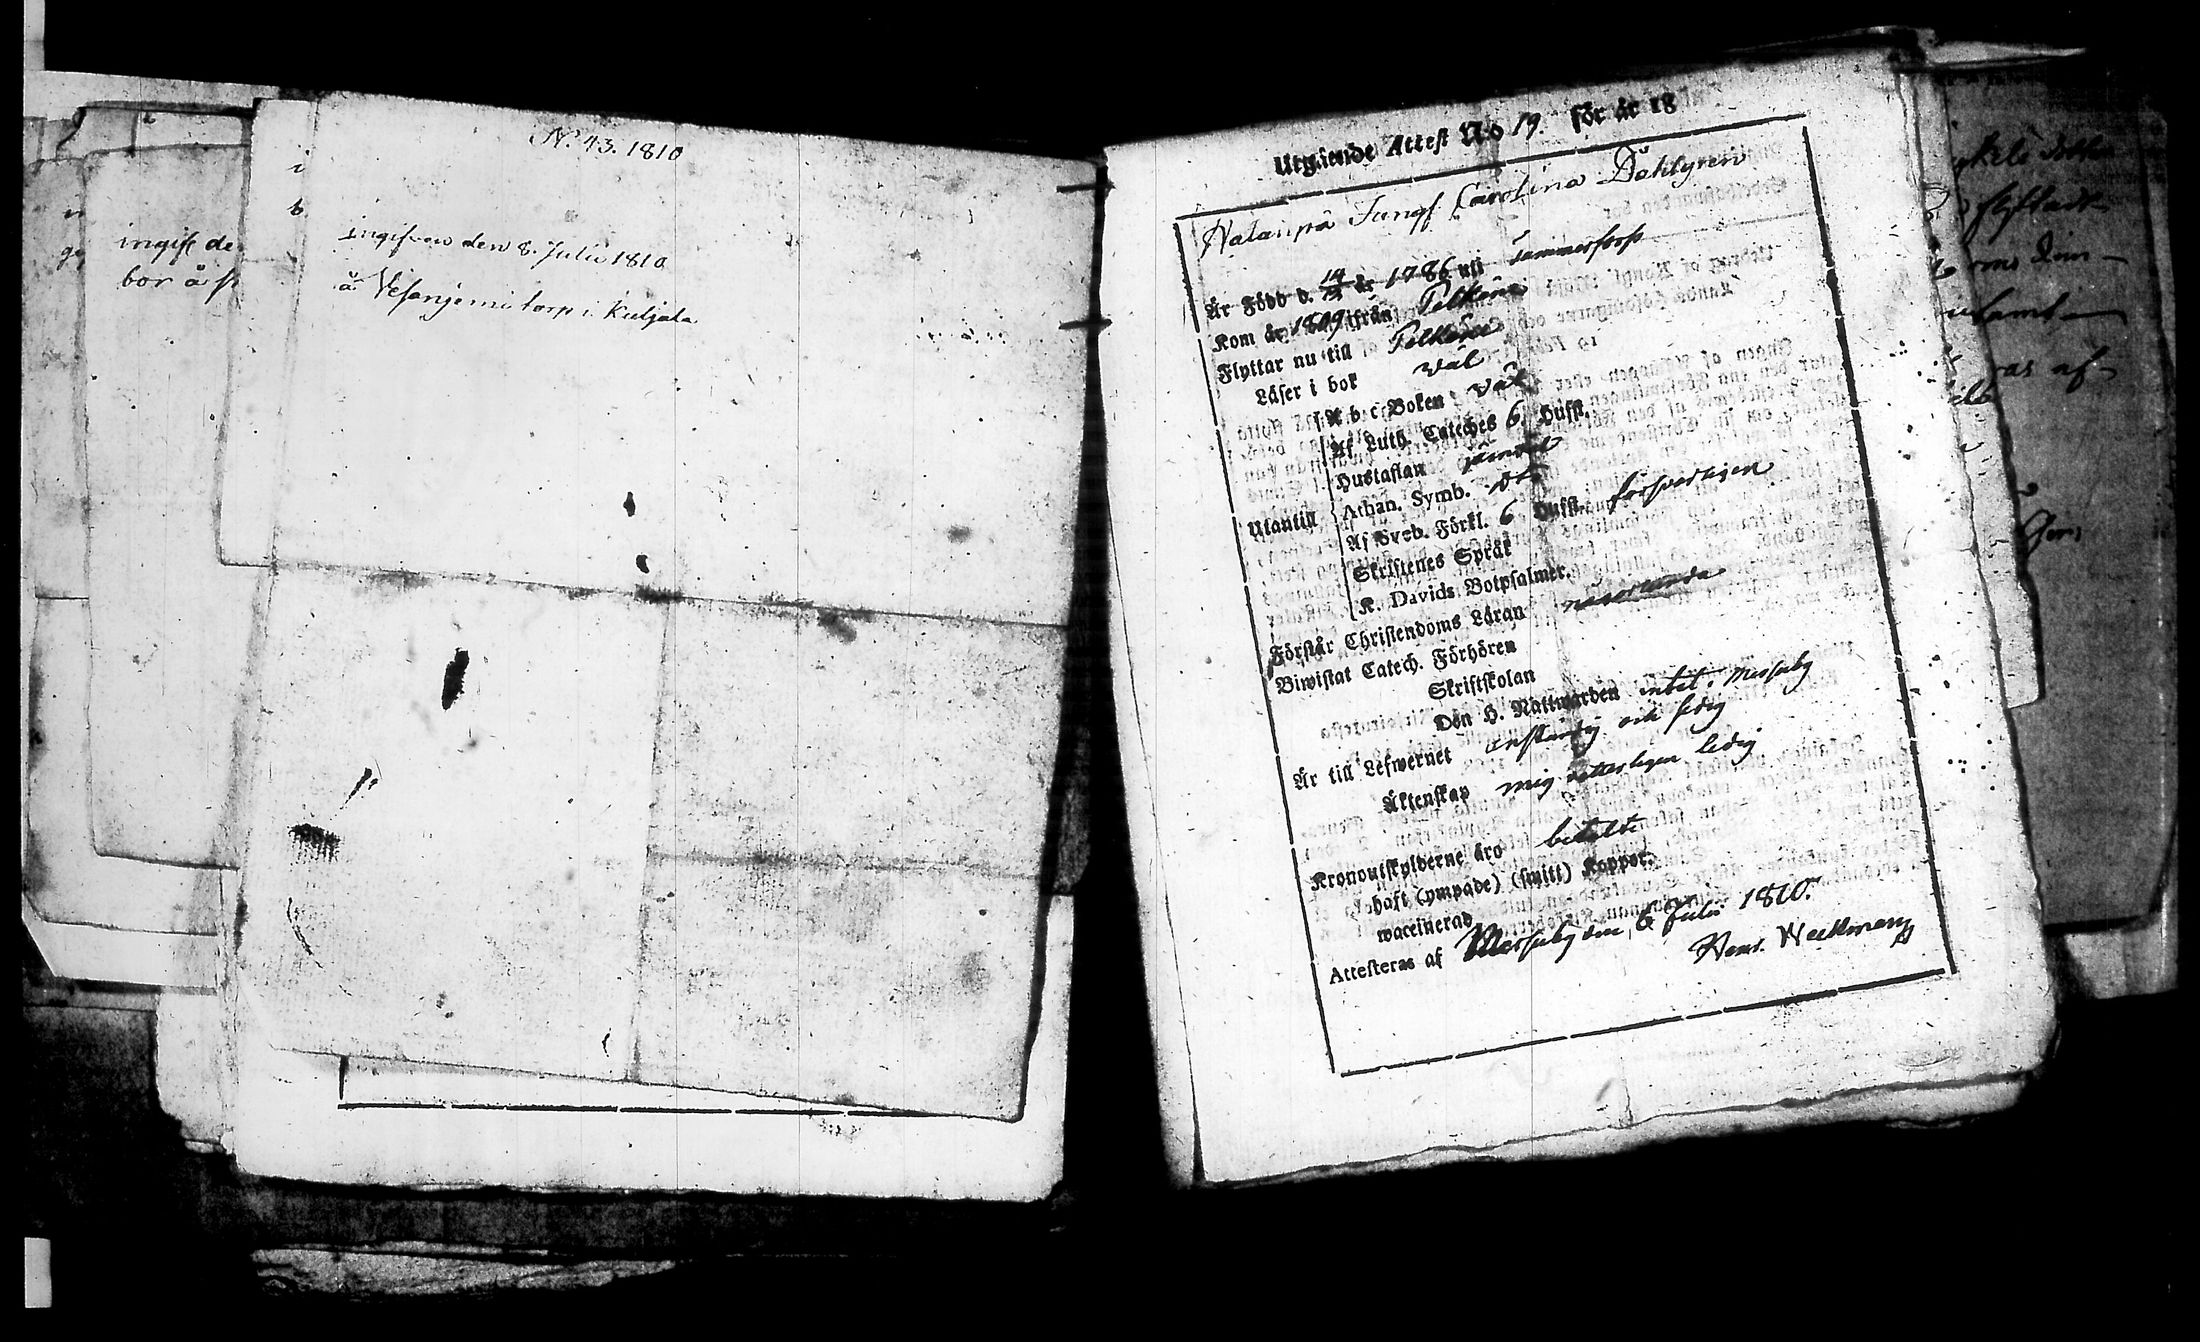 N:o 43. 1810
ingifven den 8. Julii 1810
å Vesanjemi torp i Kuljala
ingif: de
bor å
Utgående Attest N:o 19. för år 18
Jungf. Carolina Dahlgren
Är Född d. 14/12 år 1786 uti
Kom år 1809 ifrån Pelkene
Flyttar nu till Pelkene
Läser i bok wäl
A b c Boken wäl
Af Luth. Cateches 6. Hufst.
Hustaflan jämväl
Athan. Symb. dto
Utantill
Af Sveb. Förkl. 6 Hufst. försvarligen
Skriftenes Språk
K. Davids Botpsalmer.
Förstår Christendoms Läran
Biwistat Catech. Förhören
Skriftskolan
Den H. Nattwarden intet i Messuby
Är till Lefwernet anständig och sedig
Äktenskap mig veterligen ledig
Kronoutskylderne äro betalte
haft (ympade) (smitt) Koppor.
waccinerad
Attesteras af Messuby den 6 Julii 1810.